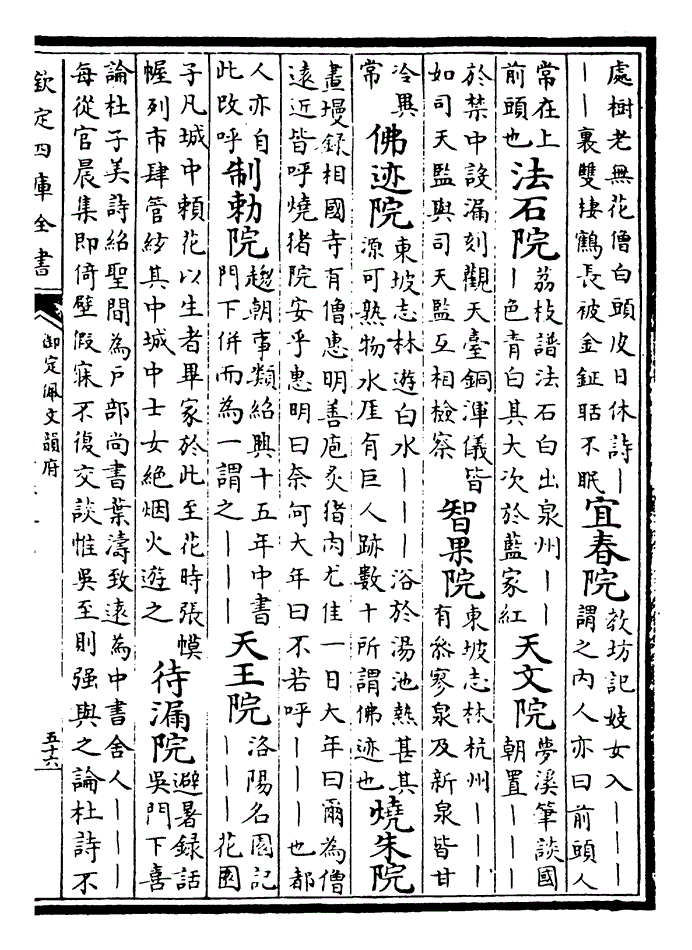 處樹老無花僧白頭皮日休詩丨
丨丨裏雙棲鶴長被金鉦聒不眠
宜春院
教坊記妓女入丨丨丨
謂之内人亦曰前頭人
常在上
前頭也
法石院
荔枝譜法石白出泉州丨丨
丨色青白其大次於藍家紅
天文院
夢溪筆談國
朝置丨丨丨
於禁中設漏刻觀天臺銅渾儀皆
如司天監與司天監互相檢察
智果院
東坡志林杭州丨丨丨
有叅寥泉及新泉皆甘
冷異
常
佛迹院
東坡志林遊白水丨丨丨浴於湯池熱甚其
源可熟物水厓有巨人跡數十所謂佛迹也
燒朱院
畫墁録相國寺有僧惠明善庖炙猪肉尤佳一日大年曰爾為僧
遠近皆呼燒猪院安乎惠明曰奈何大年曰不若呼丨丨丨也都
人亦自
此改呼
制勅院
趨朝事類紹興十五年中書
門下併而為一謂之丨丨丨
天王院
洛陽名園記
丨丨丨花園
子凡城中頼花以生者畢家於此至花時張幙
幄列市肆管絃其中城中士女絶烟火遊之
待漏院
避暑録話
吳門下喜
論杜子美詩紹聖間為戶部尚書葉濤致遠為中書舍人丨丨丨
每從官晨集即倚壁假寐不復交談惟吳至則强與之論杜詩不
欽定四庫全書
御定佩文韻府
五十六